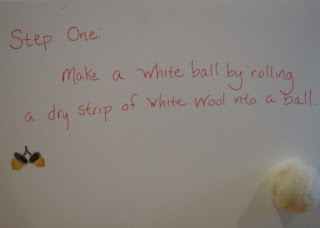 Step One:
Make a white ball by rolling
a dry strip of white wool into a ball.